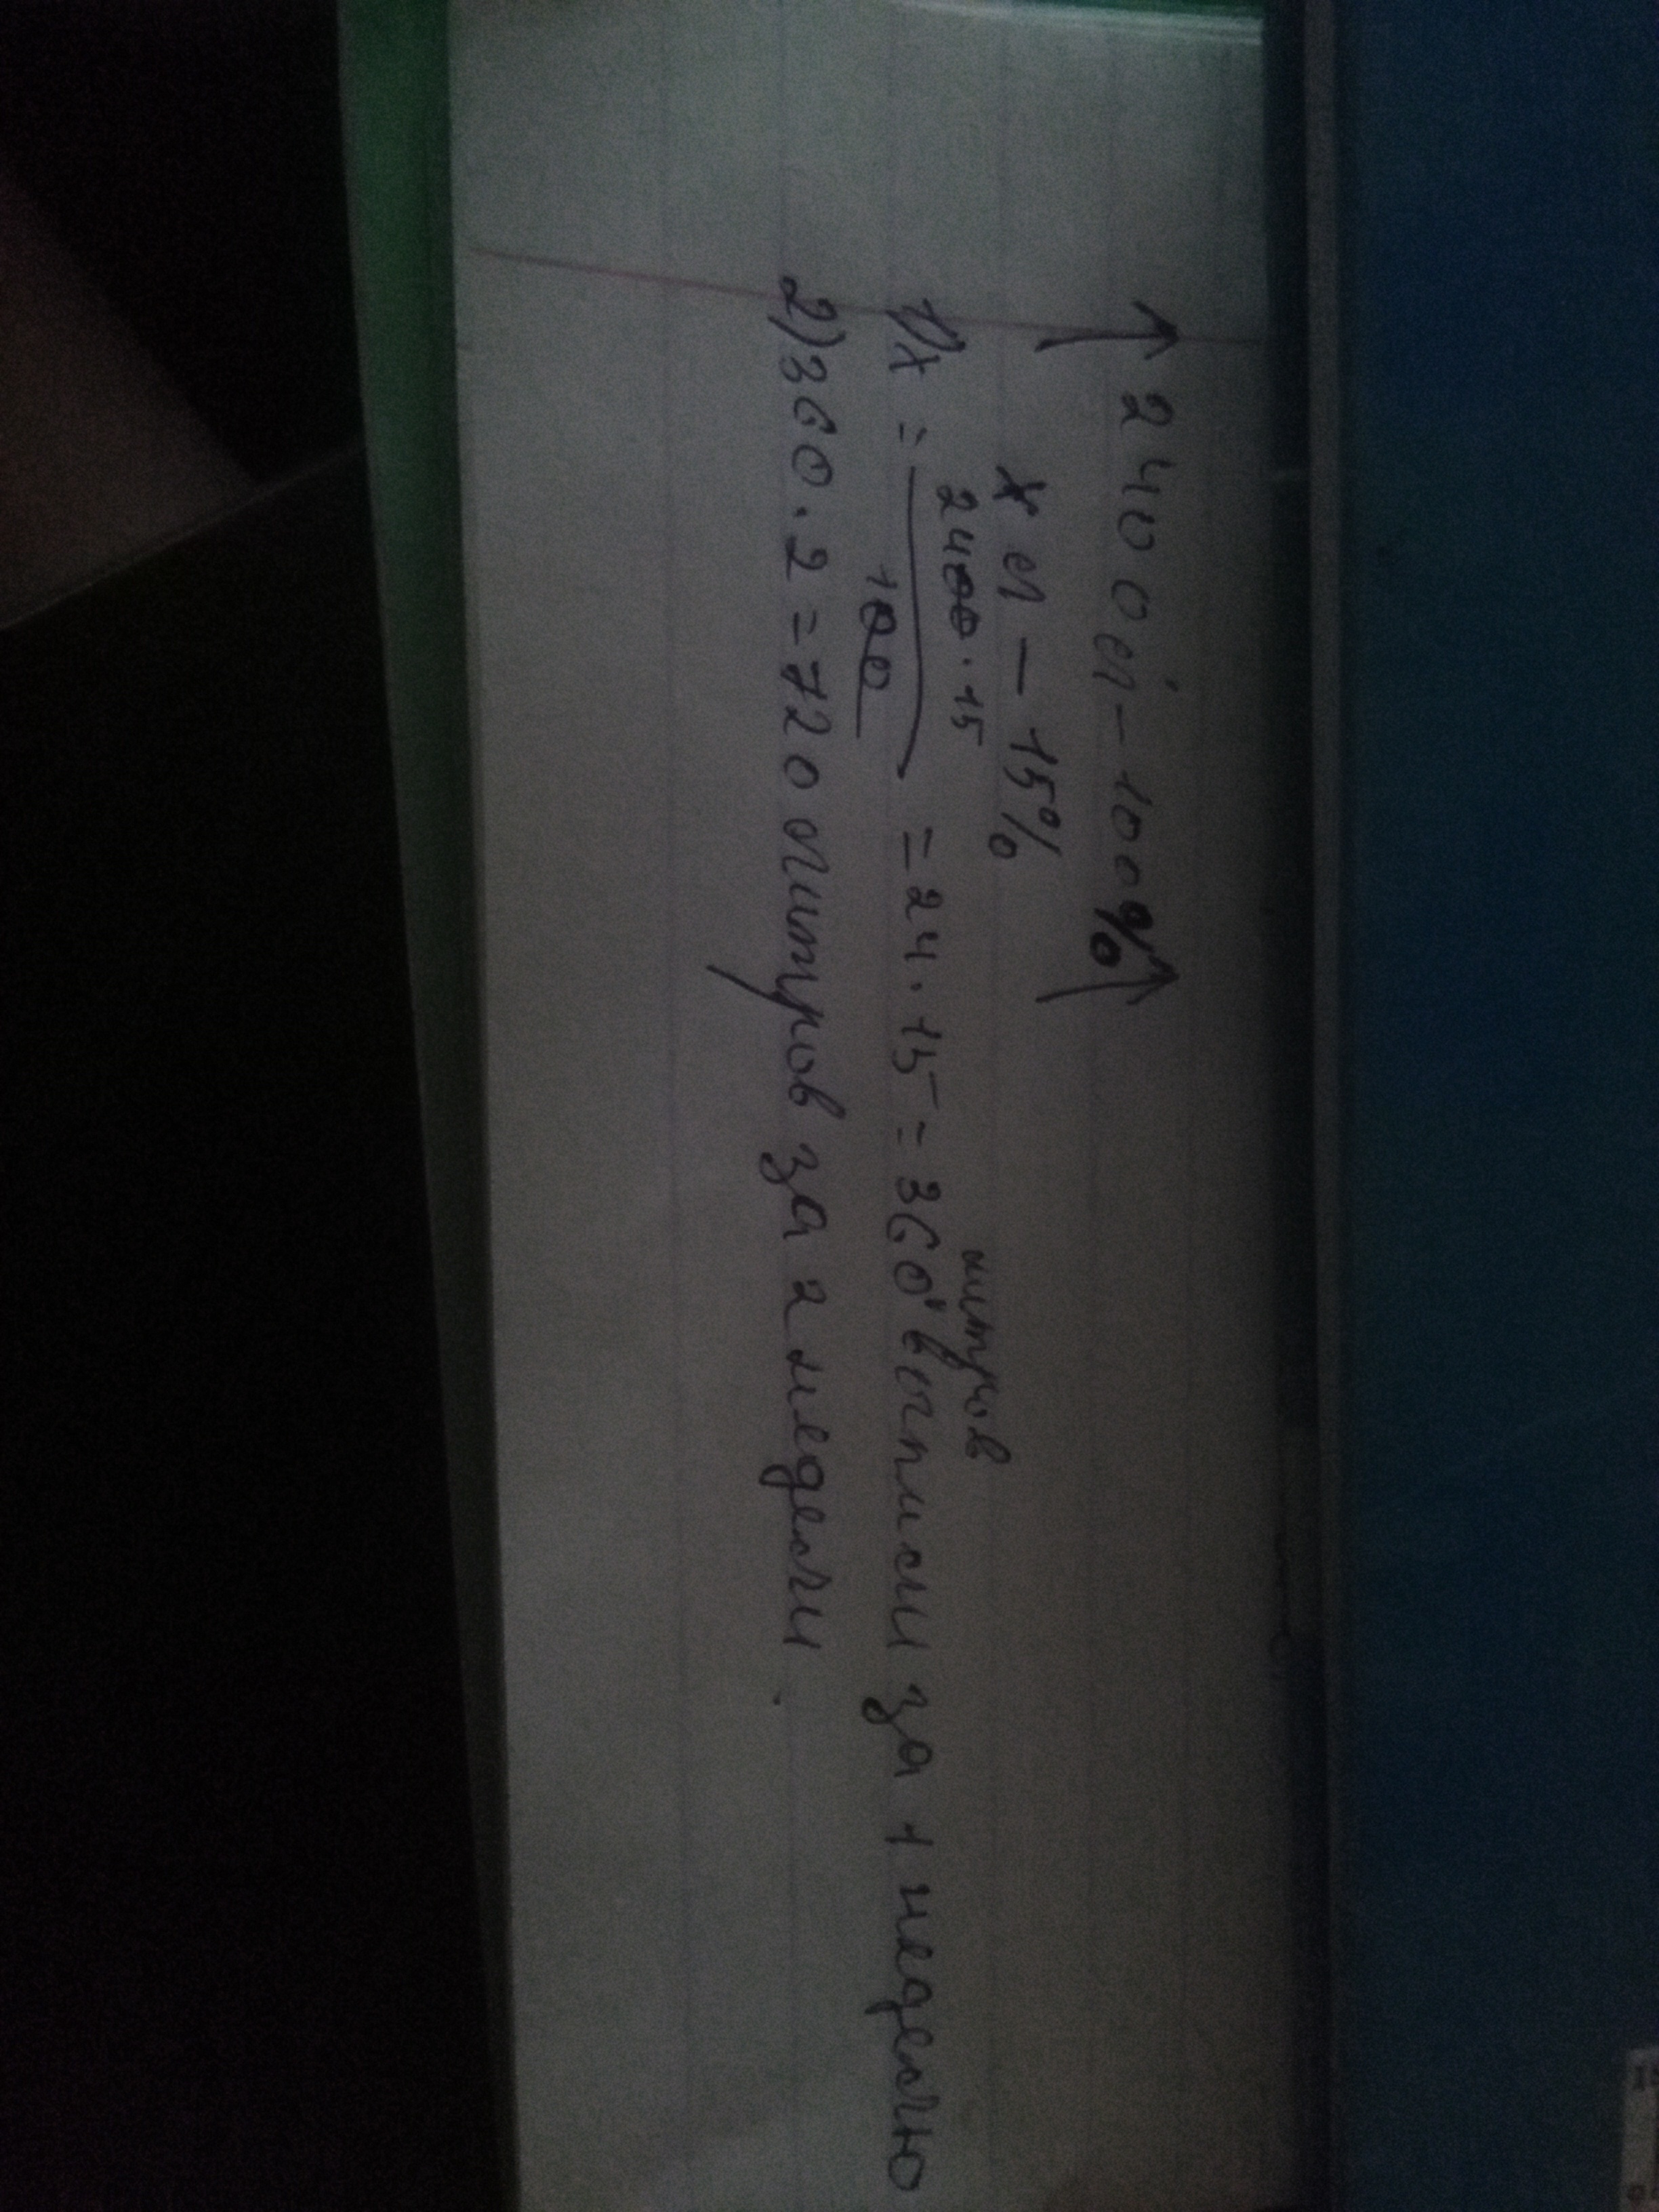 ↑ 2400 л – 100% ↑
х л – 15%
1) х = 2400 · 15 / 100 = 24 · 15 = 360 литров выпили за 1 неделю
2) 360 · 2 = 720 литров за 2 недели.